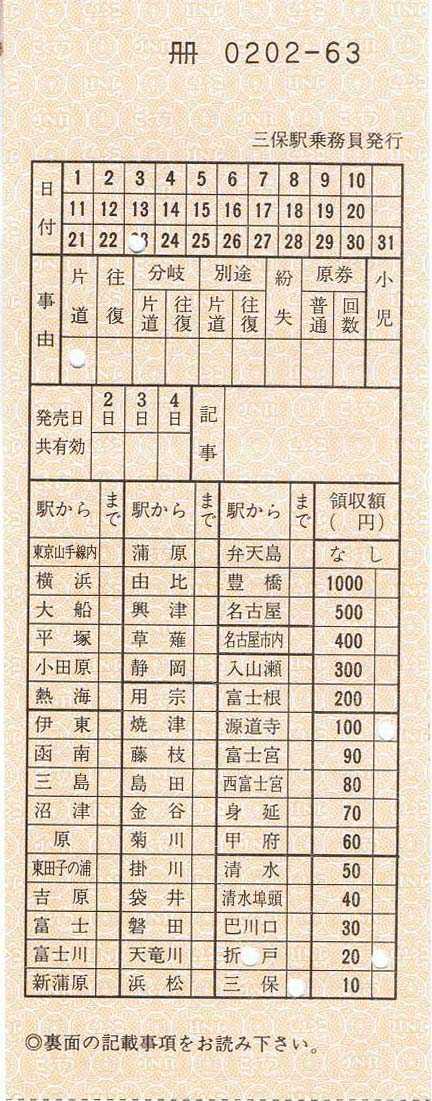 冊 0202-63
三保駅乗務員発行
日付
1 2 3 4 5 6 7 8 9 10
11 12 13 14 15 16 17 18 19 20
21 22 24 25 26 27 28 29 30 31
事由 片道 往復 分岐 別途 紛失 原券 小児
片道 往復 片道 往復 普通 回数
発売日共有効 2日 3日 4日 記事
駅から まで 駅から まで 駅から まで 領収額(円)
東京山手線内 蒲原 弁天島 なし
横浜 由比 豊橋 1000
大船 興津 名古屋 500
平塚 草薙 名古屋市内 400
小田原 静岡 入山瀬 300
熱海 用宗 富士根 200
伊東 焼津 源道寺 100
函南 藤枝 富士宮 90
三島 島田 西富士宮 80
沼津 金谷 身延 70
原 菊川 甲府 60
東田子の浦 掛川 清水 50
吉原 袋井 清水埠頭 40
富士 磐田 巴川口 30
富士川 天竜川 折戸 20
新蒲原 浜松 三保 10
◎裏面の記載事項をお読み下さい。